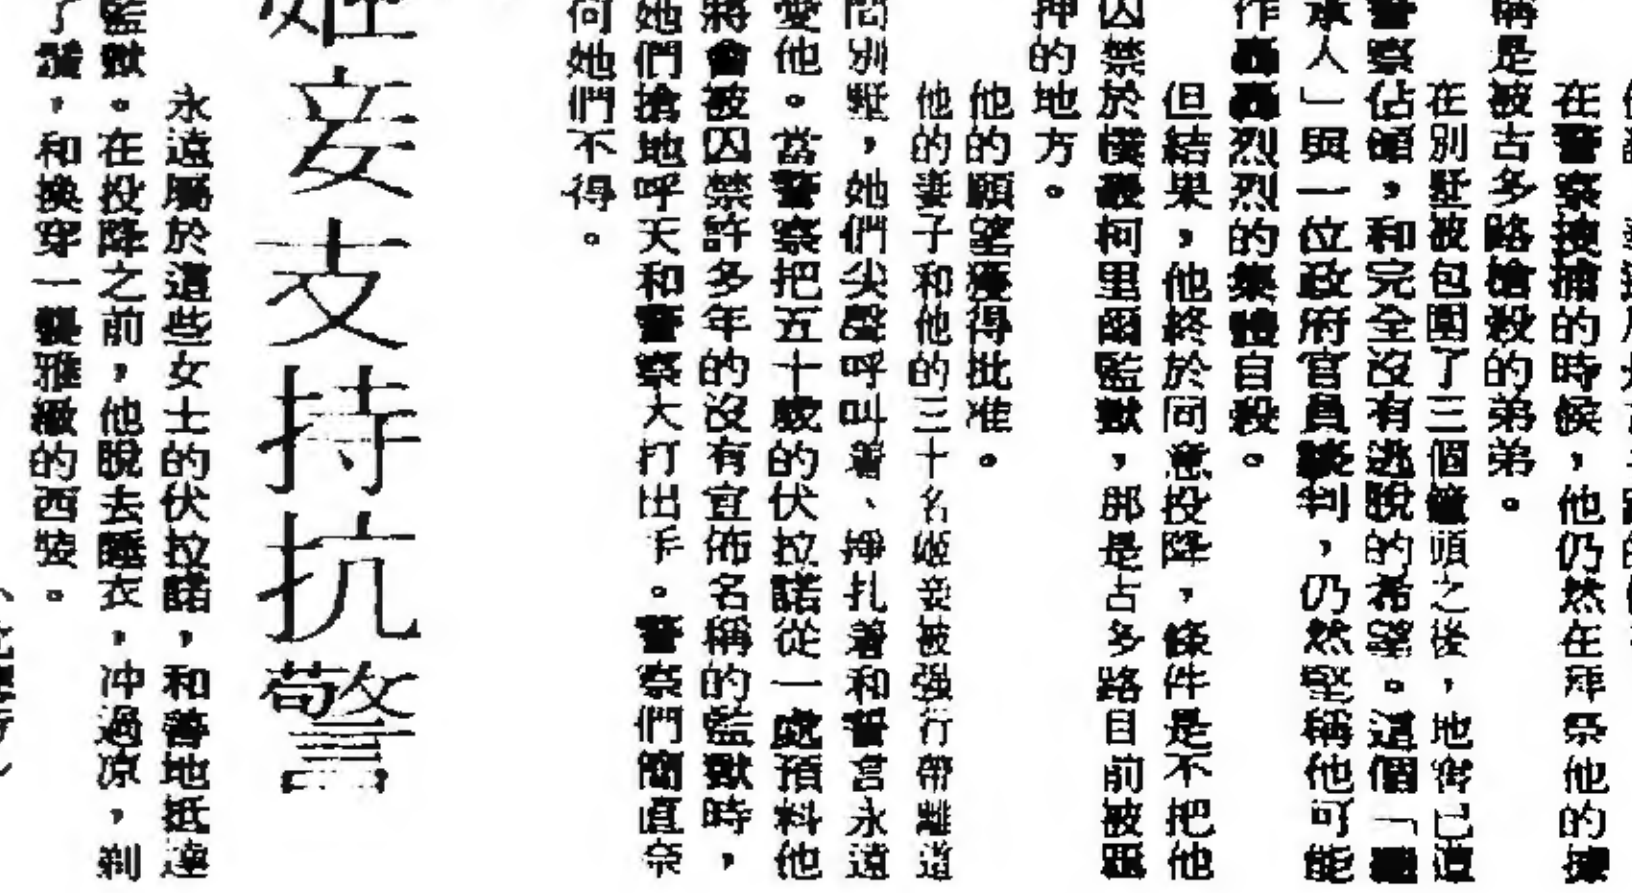 在警察被捕的時候，他仍然在拜祭他的
稱是被古多路槍殺的弟弟。
在別墅被包圍了三個鐘頭之後，地窖已遭
警察佔領，和完全沒有逃脫的希望。這個「
承人」與一位政府官員談判，仍然堅稱他可能
作轟轟烈烈的集體自殺。
但結果，他終於同意投降，條件是不把他
囚禁於樸最柯里爾監獄，那是古多路目前被
押的地方。
他的願望獲得批准。
他的妻子和他的三十名姬妾被強行帶離這
間別墅，她們尖聲呼叫着、掙扎着和誓言永遠
愛他。當警察把五十歲的伏拉諾從一處預料他
將會被囚禁許多年的沒有宣佈名稱的監獄時，
她們搶地呼天和警察大打出手。警察們簡直奈
何她們不得。
姬妾支持抗警
永遠屬於這些女士的伏拉諾，和善地抵達
監獄。在投降之前，他脫去睡衣，冲過涼，剃
了鬚，和換穿一襲雅緻的西裝。